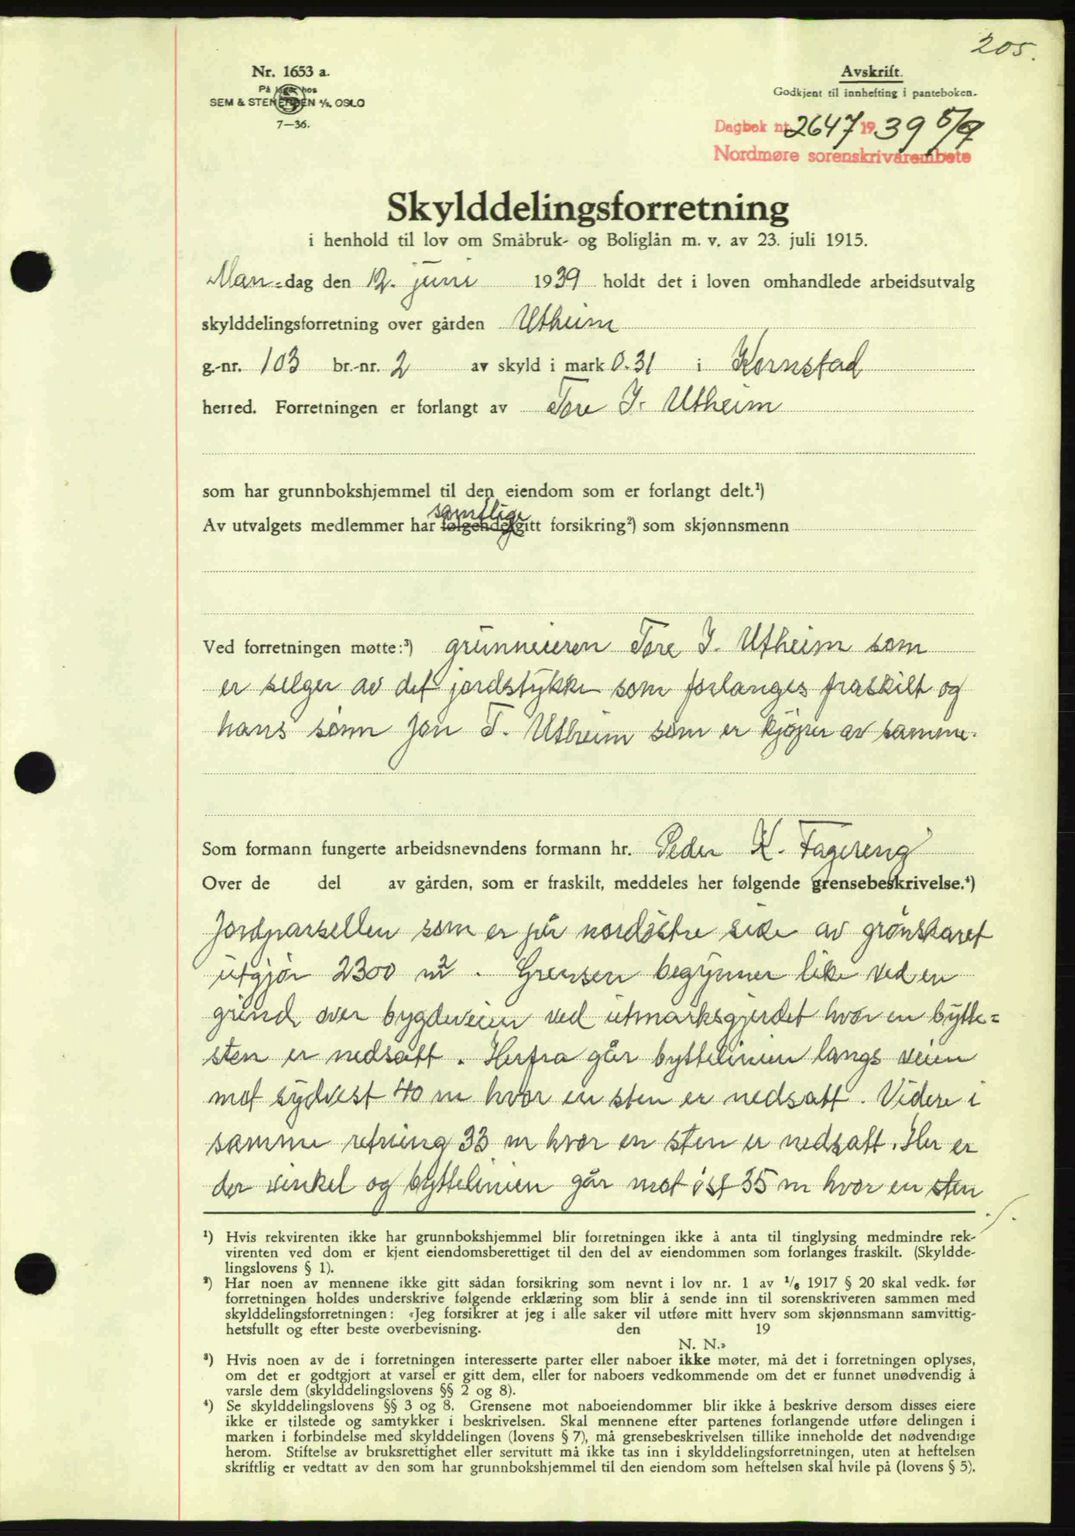 205.
Nr. 1653 a.
På lager hos
SEM & STENERSEN A/S, OSLO
7—36.
Avskrift.
Godkjent til innhefting i panteboken.
Dagbok nr. 2647 1939 5/9
Nordmøre sorenskrivarembete
Skylddelingsforretning
i henhold til lov om Småbruk- og Boliglån m. v. av 23. juli 1915.
Man-dag den 12. juni 1939 holdt det i loven omhandlede arbeidsutvalg
skylddelingsforretning over gården Utheim
g.-nr. 103 br.-nr. 2 av skyld i mark 0.31 i Kornstad
herred. Forretningen er forlangt av Tore J. Utheim
som har grunnbokshjemmel til den eiendom som er forlangt delt.¹)
samtlige
Av utvalgets medlemmer har følgende gitt forsikring²) som skjønnsmenn
Ved forretningen møtte:³) grunneieren Tore J. Utheim som
er selger av det jordstykke som forlanges fraskilt og
hans sønn Jon T. Utheim som er kjøper av samme.
Som formann fungerte arbeidsnevndens formann hr. Peder K. Fagereng
Over de del av gården, som er fraskilt, meddeles her følgende grensebeskrivelse.⁴)
Jordparsellen som er på nordøstre side av grønskaret
utgjør 2300 m². Grensen begynner like ved en
grind over bygdeveien ved utmarksgjerdet hvor en bytte=
sten er nedsatt. Herfra går byttelinien langs veien
mot sydvest 40 m hvor en sten er nedsatt. Videre i
samme retning 33 m hvor en sten er nedsatt. Her er
der vinkel og byttelinien går mot øst 35 m hvor en sten
./.
¹) Hvis rekvirenten ikke har grunnbokshjemmel blir forretningen ikke å anta til tinglysing medmindre rek-
virenten ved dom er kjent eiendomsberettiget til den del av eiendommen som forlanges fraskilt. (Skyldde-
lingslovens § 1).
²) Har noen av mennene ikke gitt sådan forsikring som nevnt i lov nr. 1 av ¹/₆ 1917 § 20 skal vedk. før
forretningen holdes underskrive følgende erklæring som blir å sende inn til sorenskriveren sammen med
skylddelingsforretningen: «Jeg forsikrer at jeg i alle saker vil utføre mitt hverv som skjønnsmann samvittig-
hetsfullt og efter beste overbevisning. den 19
N. N.»
³) Hvis noen av de i forretningen interesserte parter eller naboer ikke møter, må det i forretningen oplyses,
om det er godtgjort at varsel er gitt dem, eller for naboers vedkommende om det er funnet unødvendig å
varsle dem (skylddelingslovens §§ 2 og 8).
⁴) Se skylddelingslovens §§ 3 og 8. Grensene mot naboeiendommer blir ikke å beskrive dersom disses eiere
ikke er tilstede og samtykker i beskrivelsen. Skal mennene efter partenes forlangende utføre delingen i
marken i forbindelse med skylddelingen (lovens § 7), må grensebeskrivelsen tillike inneholde det nødvendige
herom. Stiftelse av bruksrettighet eller servitutt må ikke tas inn i skylddelingsforretningen, uten at heftelsen
skriftlig er vedtatt av den som har grunnbokshjemmel til den eiendom som heftelsen skal hvile på (lovens § 5).